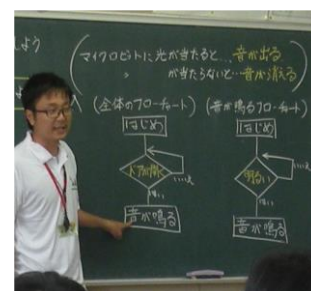 しよう
マイクロビットに光が当たると…音が出る
〃 が当たらないと…音が消える
(全体のフローチャート)
はじめ
ドアが開く
いいえ
はい
音が鳴る
(音が鳴るフローチャート)
はじめ
明るい
いいえ
はい
音が鳴る